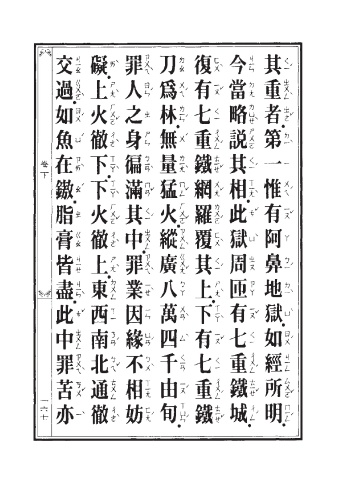 其重者第一惟有阿鼻地獄如經所明
今當略説其相此獄周匝有七重鐵城
復有七重鐵網羅覆其上下有七重鐵
刀爲林無量猛火縱廣八萬四千由旬
罪人之身徧滿其中罪業因緣不相妨
礙上火徹下下火徹上東西南北通徹
交過如魚在鏾脂膏皆盡此中罪苦亦
卷下
一六十